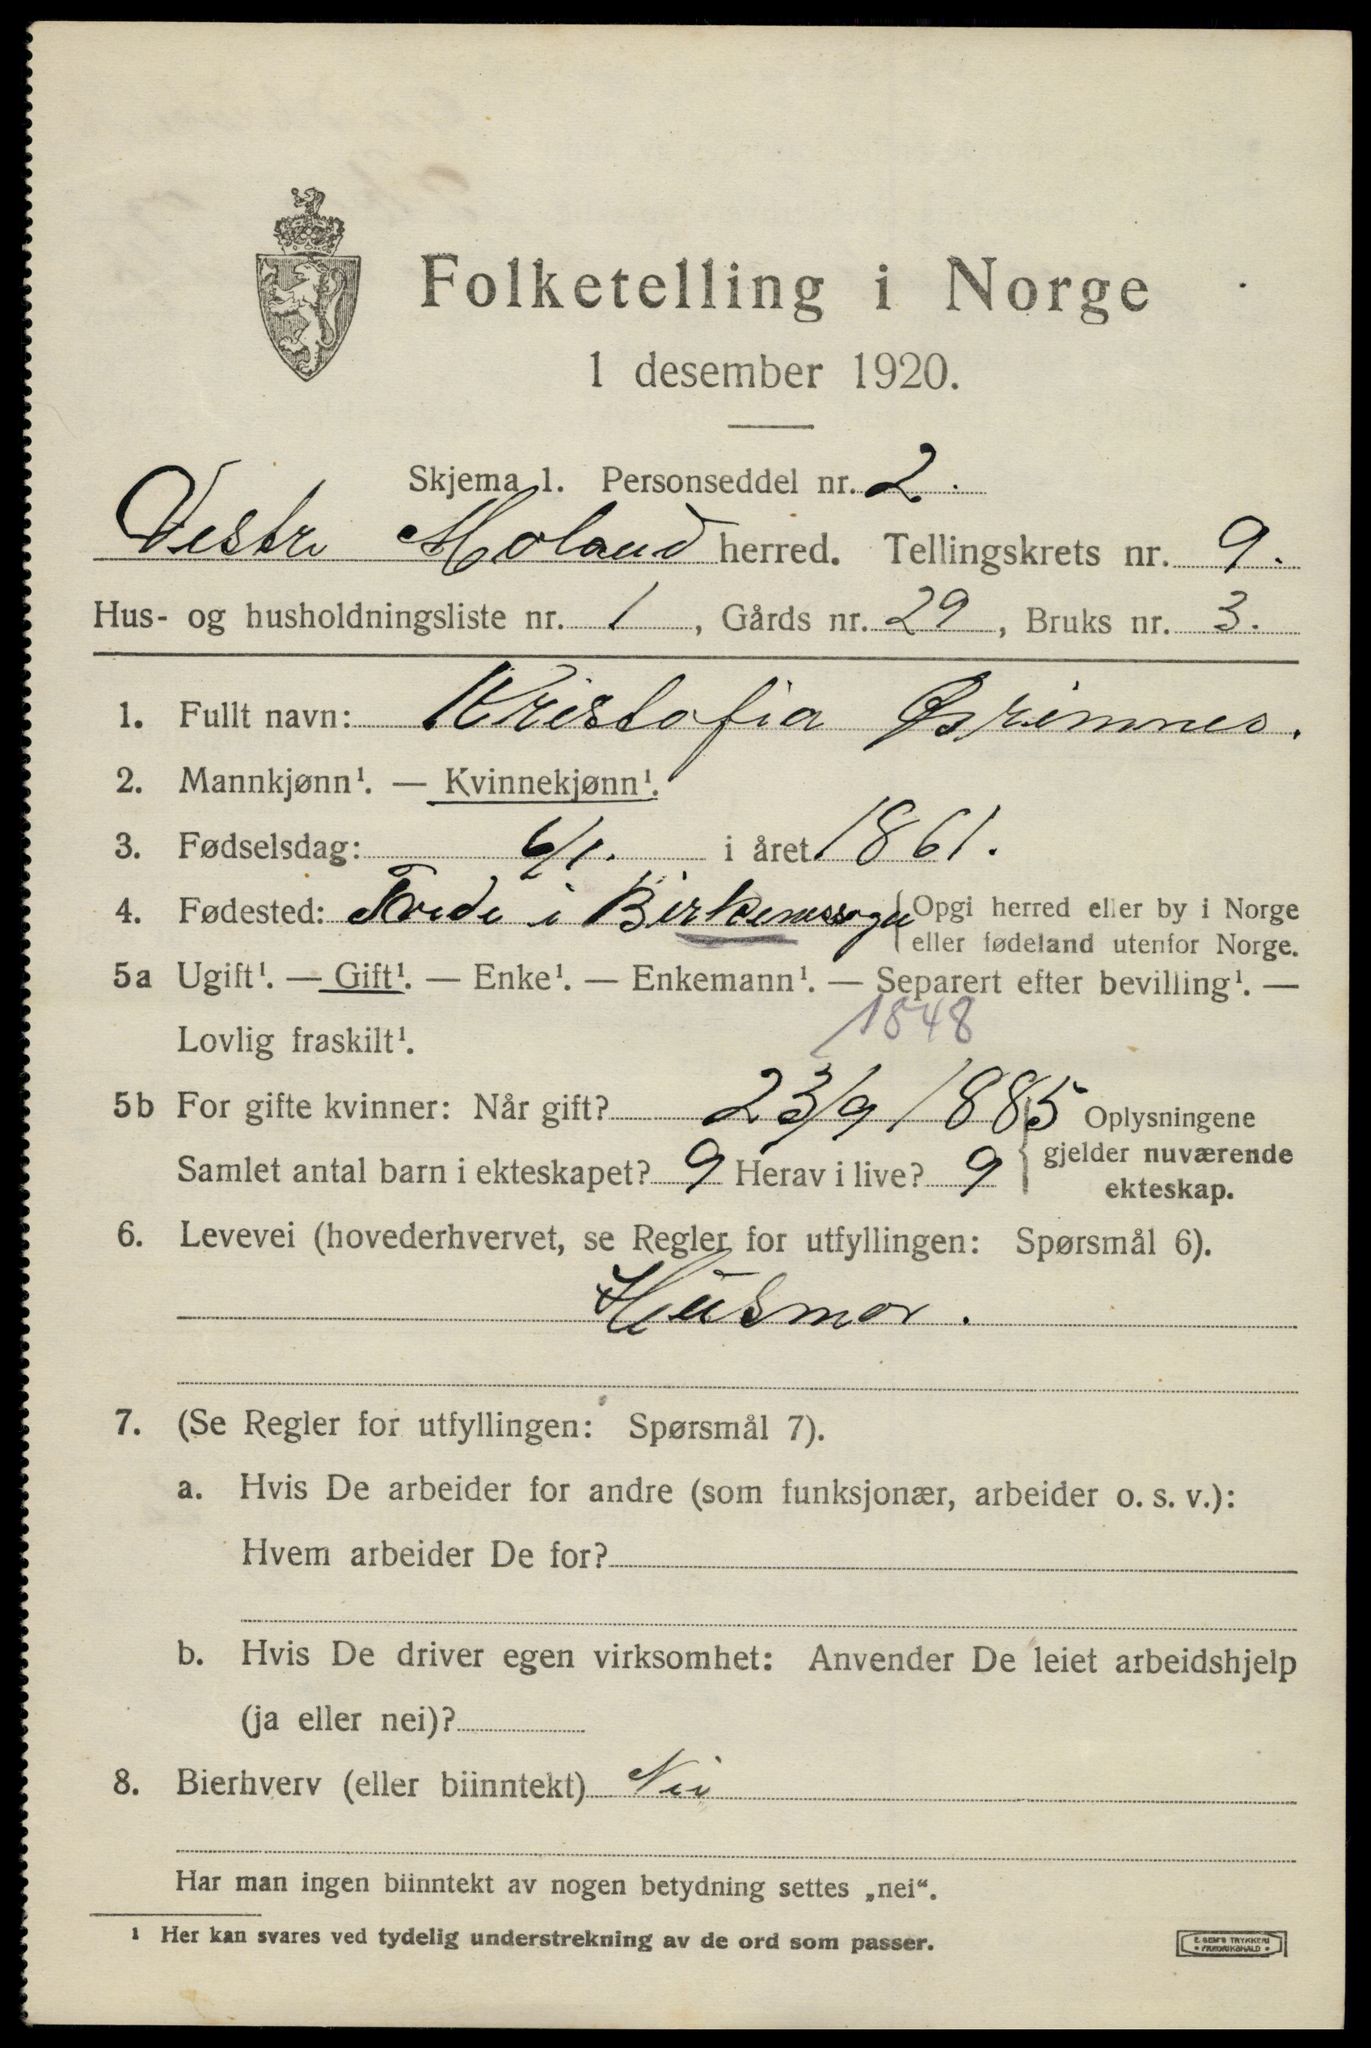 Folketelling i Norge
1 desember 1920.
Skjema 1. Personseddel nr. 2.
Vestre Moland herred. Tellingskrets nr. 9.
Hus- og husholdningsliste nr. 1, Gårds nr. 29, Bruks nr. 3.
1. Fullt navn: Kristofia Grimnes.
2. Mannkjønn¹. — Kvinnekjønn¹.
3. Fødselsdag: 6/1. i året 1861.
4. Fødested: Tvede i Birkenessogn {Opgi herred eller by i Norge
eller fødeland utenfor Norge.
5a Ugift¹. — Gift¹. — Enke¹. — Enkemann¹. — Separert efter bevilling¹. —
Lovlig fraskilt¹.
1848
5b For gifte kvinner: Når gift? 23/9 1885 Oplysningene
gjelder nuværende
Samlet antal barn i ekteskapet? 9 Herav i live? 9
ekteskap.
6. Levevei (hovederhvervet, se Regler for utfyllingen: Spørsmål 6).
Husmor.
7. (Se Regler for utfyllingen: Spørsmål 7).
a. Hvis De arbeider for andre (som funksjonær, arbeider o. s. v.):
Hvem arbeider De for?
b. Hvis De driver egen virksomhet: Anvender De leiet arbeidshjelp
(ja eller nei)?
8. Bierhverv (eller biinntekt) Nei
Har man ingen biinntekt av nogen betydning settes „nei“.
¹ Her kan svares ved tydelig understrekning av de ord som passer.
E. SEM'S TRYKKERI
FREDRIKSHALD